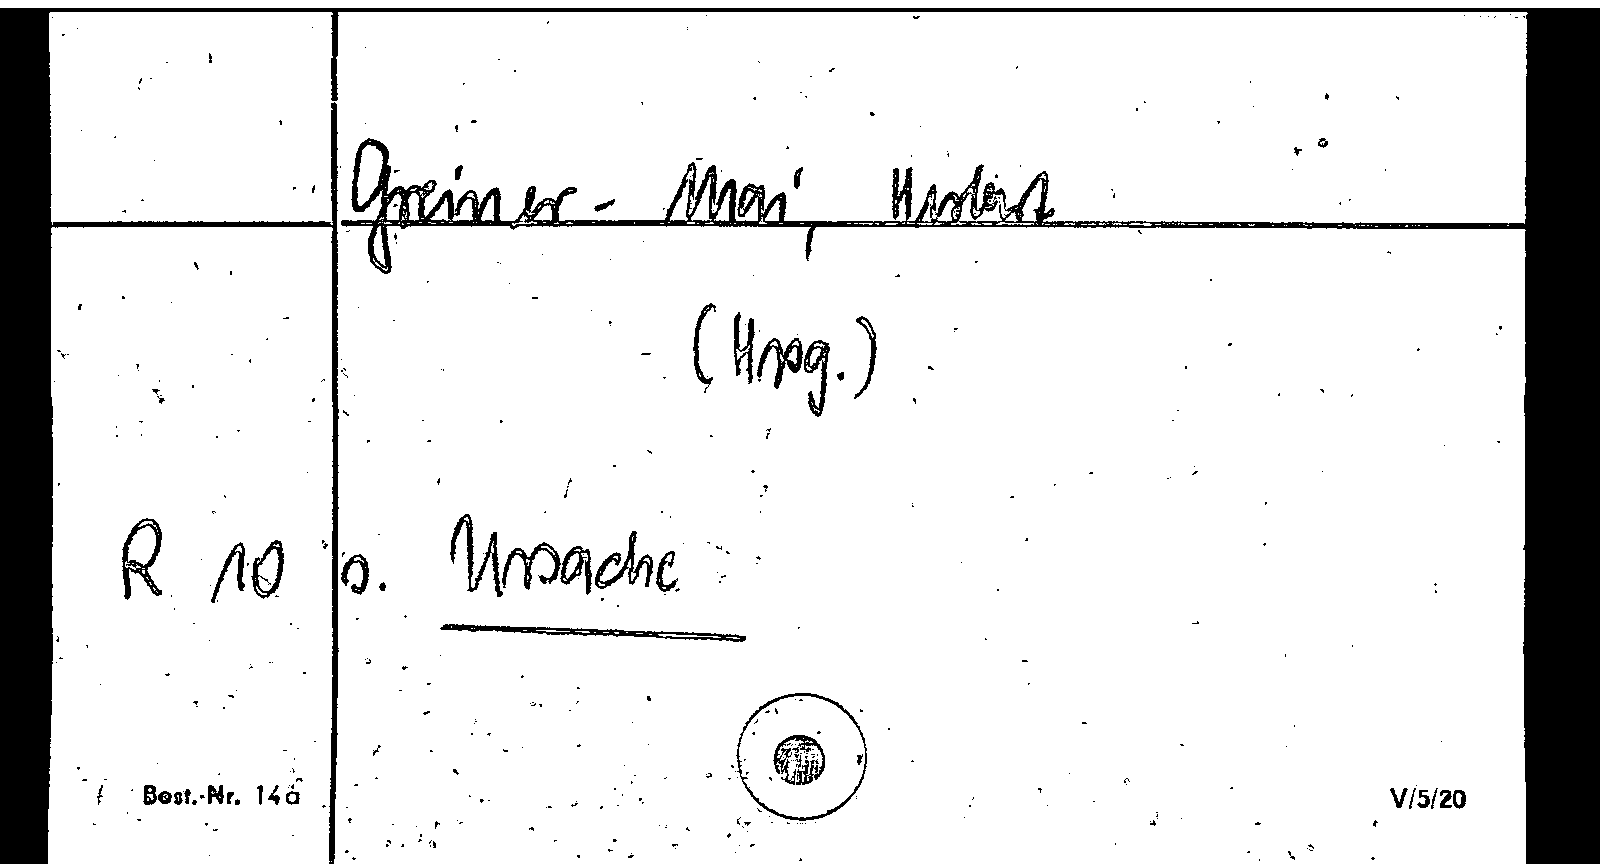 Greiner-Mai, Herbert
(Hrsg.)
R 10 s. Ursache
Best.-Nr. 14a V/5/20